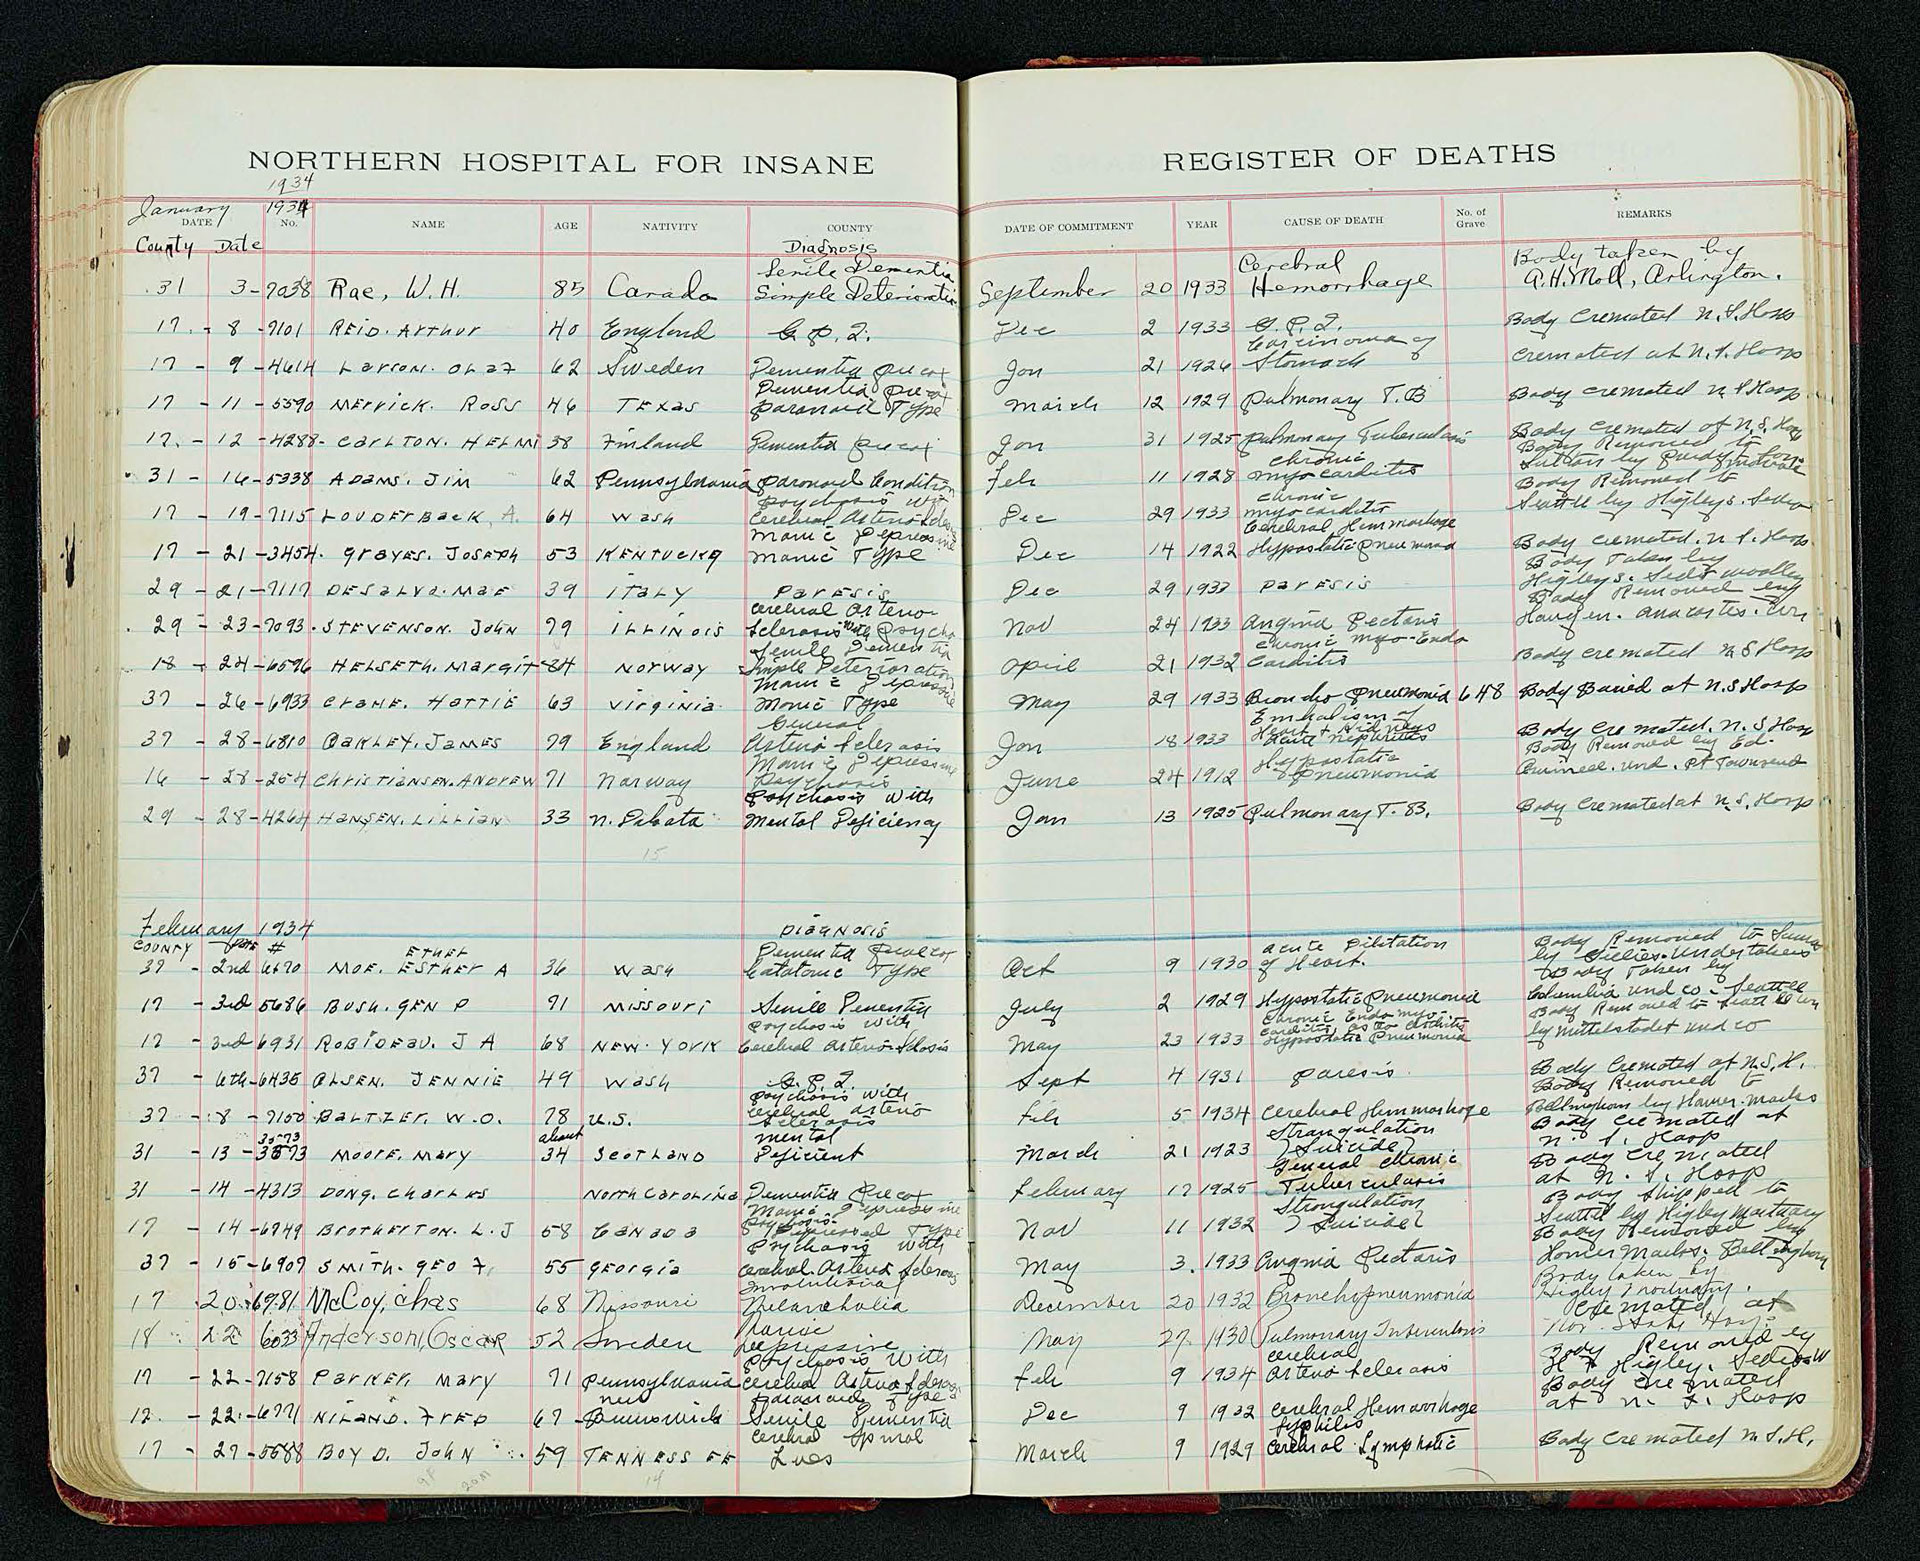 NORTHERN HOSPITAL FOR INSANE
REGISTER OF DEATHS
1934
January 1934
DATE No. NAME AGE NATIVITY COUNTY DATE OF COMMITMENT YEAR CAUSE OF DEATH No. of Grave REMARKS
County Date Diagnosis
31 3-7038 Rae, W.H. 85 Canada Senile Dementia Simple Deterioration September 20 1933 Cerebral Hemorrhage Body taken by A.H. Moll, Arlington.
17 - 8 - 7101 REID. Arthur 40 England G.P.I. Dec 2 1933 G.P.I. Body Cremated N.S. Hosp
17 - 9 - 4614 Larson. Olaf 62 Sweden Dementia Precox Jan 21 1926 Carcinoma of Stomach Cremated at N.S. Hosp
17 - 11 - 5590 Merrick. Ross 46 Texas Dementia Precox Paranoid Type March 12 1929 Pulmonary T.B Body Cremated N.S Hosp.
17. - 12 - 4288 - Carlton. Helmi 38 Finland Dementia Precox Jan 31 1925 Pulmonary Tuberculosis Body Cremated at N.S. Hosp
31 - 16 - 5338 Adams. Jim 62 Pennsylvania Paranoid Condition Feb 11 1928 Chronic myocarditis Body Removed to by Purdy
17 - 19 - 7115 Louderback, A. 64 Wash Psychosis with Cerebral Arterio Sclerosis Dec 29 1933 Chronic myocarditis Body Removed to Seattle by Higleys. Sedro
17 - 21 - 3454. Graves. Joseph 53 Kentucky Manic Depressive Manic Type Dec 14 1922 Cerebral Hemmorhage Hypostatic Pneumonia Body Cremated. N.S. Hosp.
29 - 21 - 7117 DeSalva. Mae 39 Italy Paresis Dec 29 1933 Paresis Body Taken by Higleys. Sedro Woolley
29 - 23 - 7093. Stevenson. John 79 Illinois Cerebral Arterio Sclerosis with Psycho Nov 24 1933 Angina Pectoris Body Removed by Haugen. Anacortes.
18 - 24 - 6596 Helseth. Margit 84 Norway Senile Dementia Simple Deterioration April 21 1932 Chronic Myo-Endo Carditis Body Cremated N S Hosp
37 - 26 - 6933 Crane. Hattie 63 Virginia. Manic Depressive Manic Type May 29 1933 Broncho Pneumonia 648 Body Buried at N.S Hosp
37 - 28 - 6810 Oakley. James 79 England General Arterio Sclerosis Jan 18 1933 Embolism of Heart + Kidneys Acute Nephritis Body Cremated. N.S Hosp
16 - 28 - 254 Christiansen. Andrew 71 Norway Manic Depressive Psychosis June 24 1912 Hypostatic Pneumonia Body Removed by Ed. Und. Pt Townsend
29 - 28 - 4264 Hansen. Lillian 33 N. Dakota Psychosis with Mental Deficiency Jan 13 1925 Pulmonary T.B. Body Cremated at N.S. Hosp
15
February 1934 Diagnosis
County Date #
37 - 2nd 6670 Moe. Ethel Esther A 36 Wash Dementia Precox Catatonic Type Oct 9 1930 Acute Dilitation of Heart. Body Removed to by Gillies. Undertakers
17 - 3rd 5686 Bush. Gen P 71 Missouri Senile Dementia July 2 1929 Hypostatic Pneumonia Body Taken by Columbia Und Co. Seattle
17 - 3rd 6931 Robideau. J A 68 New York Psychosis with Cerebral Arterio Sclosis May 23 1933 Chronic Endo myocarditis Hypostatic Pneumonia Body Removed to Seattle by Mittelstadt Und Co
37 - 6th - 6435 Olsen. Jennie 49 Wash G.P.I. Sept 4 1931 Paresis. Body Cremated at N.S.H.
37 - 8 - 7150 Baltzer, W.O. 78 U.S. Psychosis with Cerebral Arterio Sclerosis Feb 5 1934 Cerebral Hemmorhage Body Removed to Bellingham by Homer-Marks
31 - 13 - 3573 3573 Moore. Mary about 34 Scotland Mental Deficient March 21 1923 Strangulation (Suicide) Body Cremated at N.S. Hosp
31 - 14 - 4313 Dong. Charles North Carolina Dementia Precox February 17 1925 General Chronic Tuberculosis Body Cremated at N.S. Hosp
17 - 14 - 6749 Brotherton. L.J 58 Canada Manic-Depressive Psychosis- Depressed Type Nov 11 1932 Strangulation (Suicide) Body Shipped to Seattle by Higley Mortuary
37 - 15 - 6907 Smith. Geo F. 55 Georgia Psychosis with Cerebral Arterio Sclerosis May 3. 1933 Angina Pectoris Body Removed by Homer Marks. Bellingham
17 20 6781 McCoy, Chas 68 Missouri Involutional Melancholia December 20 1932 Bronchopneumonia Body taken by Higley Mortuary.
18 22 6033 Anderson, Oscar 52 Sweden Manic Depressive May 27. 1930 Pulmonary Tuberculosis Cremated at Nor. State Hosp.
17 - 22 - 7158 Parker, Mary 71 Pennsylvania Psychosis with Cerebral Arterio Sclerosis Feb 9 1934 Cerebral Arterio Sclerosis Body Removed by Higley. Sedro W
12. - 22. - 6771 Niland. Fred 67 New Brunswick Paranoid Type Senile Dementia Dec 9 1932 Cerebral Hemorrhage Body Cremated at N.S. Hosp
17 - 27 - 5588 Boyd. John 59 Tennessee Cerebral Spinal Lues March 9 1929 Syphilis Cerebral Lymphatic Body Cremated N.S.H.
14